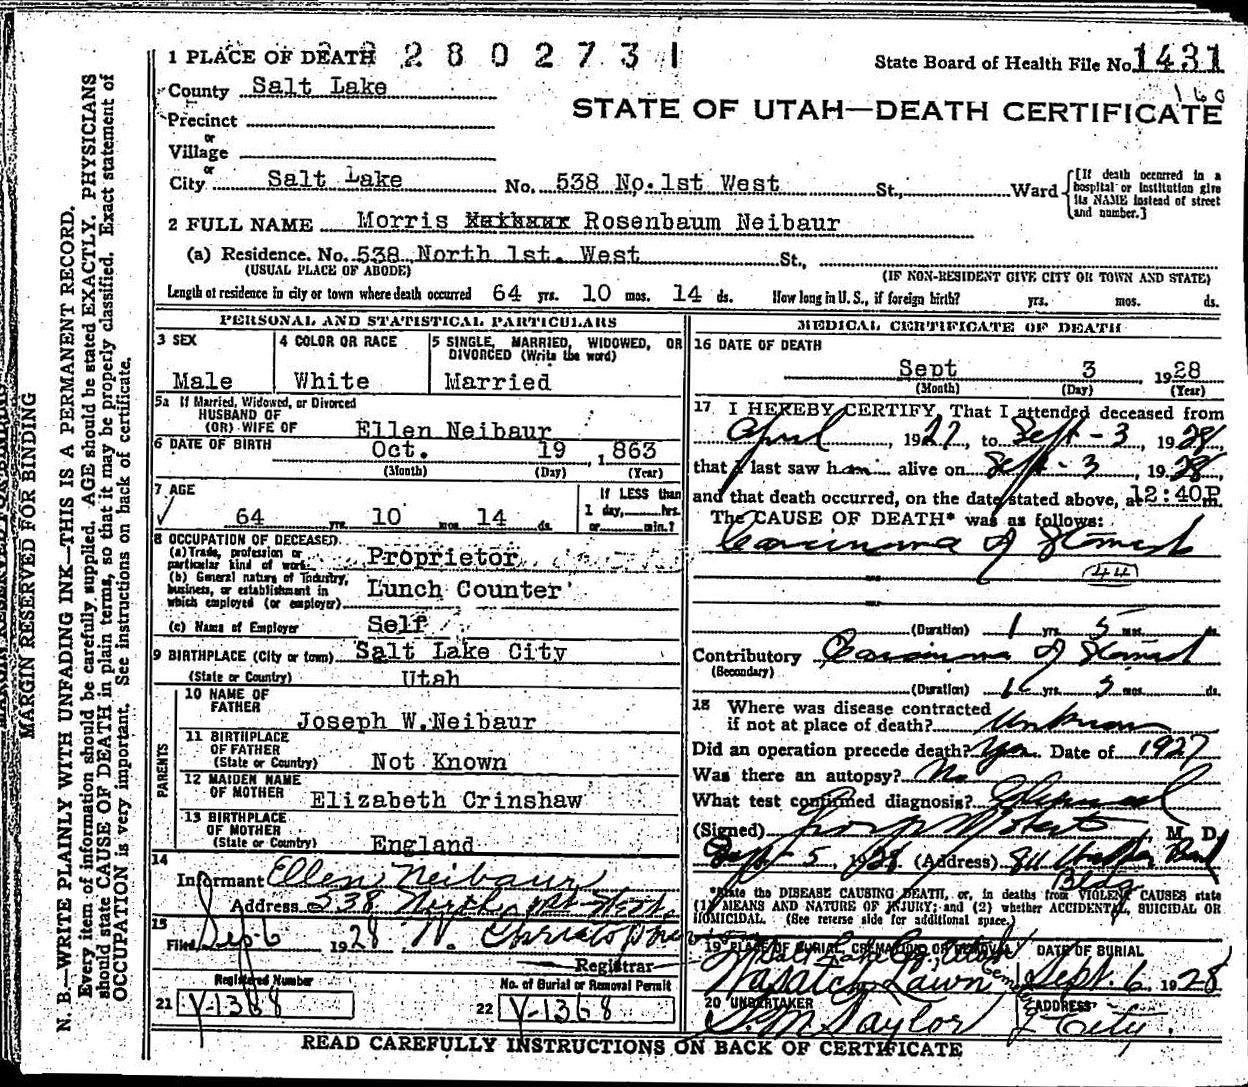 MARGIN RESERVED FOR BINDING
N. B.—WRITE PLAINLY WITH UNFADING INK—THIS IS A PERMANENT RECORD.
Every item of information should be carefully supplied. AGE should be stated EXACTLY. PHYSICIANS
should state CAUSE OF DEATH in plain terms, so that it may be properly classified. Exact statement of
OCCUPATION is very important. See instructions on back of certificate.
1 PLACE OF DEATH 2 8 0 2 7 3 1
State Board of Health File No. 1431
160
County Salt Lake
STATE OF UTAH—DEATH CERTIFICATE
Precinct
or
Village
or
City Salt Lake No. 538 No. 1st West St., Ward
[If death occurred in a hospital or institution give its NAME instead of street and number.]
2 FULL NAME Morris Rosenbaum Neibaur
(a) Residence. No. 538 North 1st. West St.,
(USUAL PLACE OF ABODE) (IF NON-RESIDENT GIVE CITY OR TOWN AND STATE)
Length of residence in city or town where death occurred 64 yrs. 10 mos. 14 ds. How long in U. S., if foreign birth? yrs. mos. ds.
PERSONAL AND STATISTICAL PARTICULARS
3 SEX
Male
4 COLOR OR RACE
White
5 SINGLE, MARRIED, WIDOWED, OR
DIVORCED (Write the word)
Married
5a If Married, Widowed, or Divorced
HUSBAND OF
(OR) WIFE OF Ellen Neibaur
6 DATE OF BIRTH Oct. 19 , 1863
(Month) (Day) (Year)
7 AGE
64 yrs. 10 mos. 14 ds.
If LESS than
1 day, hrs.
or min.?
8 OCCUPATION OF DECEASED
(a) Trade, profession or
particular kind of work Proprietor
(b) General nature of Industry,
business, or establishment in
which employed (or employer) Lunch Counter
(c) Name of Employer Self
9 BIRTHPLACE (City or town) Salt Lake City
(State or Country) Utah
PARENTS
10 NAME OF
FATHER Joseph W. Neibaur
11 BIRTHPLACE
OF FATHER
(State or Country) Not Known
12 MAIDEN NAME
OF MOTHER Elizabeth Crinshaw
13 BIRTHPLACE
OF MOTHER
(State or Country) England
14
Informant Ellen Neibaur
Address 538 North 1st West.
15
Filed Sep-6 1928 W. Christopherson
Registrar
Registered Number
21 V-1368
No. of Burial or Removal Permit
22 V-1368
MEDICAL CERTIFICATE OF DEATH
16 DATE OF DEATH
Sept 3 , 1928
(Month) (Day) (Year)
17 I HEREBY CERTIFY, That I attended deceased from
April , 1927, to Sept - 3 1928,
that I last saw him alive on Sept - 3 , 1928,
and that death occurred, on the date stated above, at 12:40P m.
The CAUSE OF DEATH* was as follows:
Carcinoma of Stomach
44
(Duration) 1 yrs. 5 mos. ds.
Contributory Carcinoma of Stomach
(Secondary)
(Duration) 1 yrs. 5 mos. ds.
18 Where was disease contracted
if not at place of death? Unknown
Did an operation precede death? Yes Date of 1927
Was there an autopsy? No
What test confirmed diagnosis?
(Signed) M. D.
Sept - 5, 1928. (Address)
Bldg
*State the DISEASE CAUSING DEATH, or, in deaths from VIOLENT CAUSES state
(1) MEANS AND NATURE OF INJURY; and (2) whether ACCIDENTAL, SUICIDAL OR
HOMICIDAL. (See reverse side for additional space.)
19 PLACE OF BURIAL, CREMATION OR REMOVAL
Salt Lake City, Utah
Wasatch Lawn Cem
DATE OF BURIAL
Sept. 6, 1928
20 UNDERTAKER
S. M. Taylor
ADDRESS
City.
READ CAREFULLY INSTRUCTIONS ON BACK OF CERTIFICATE